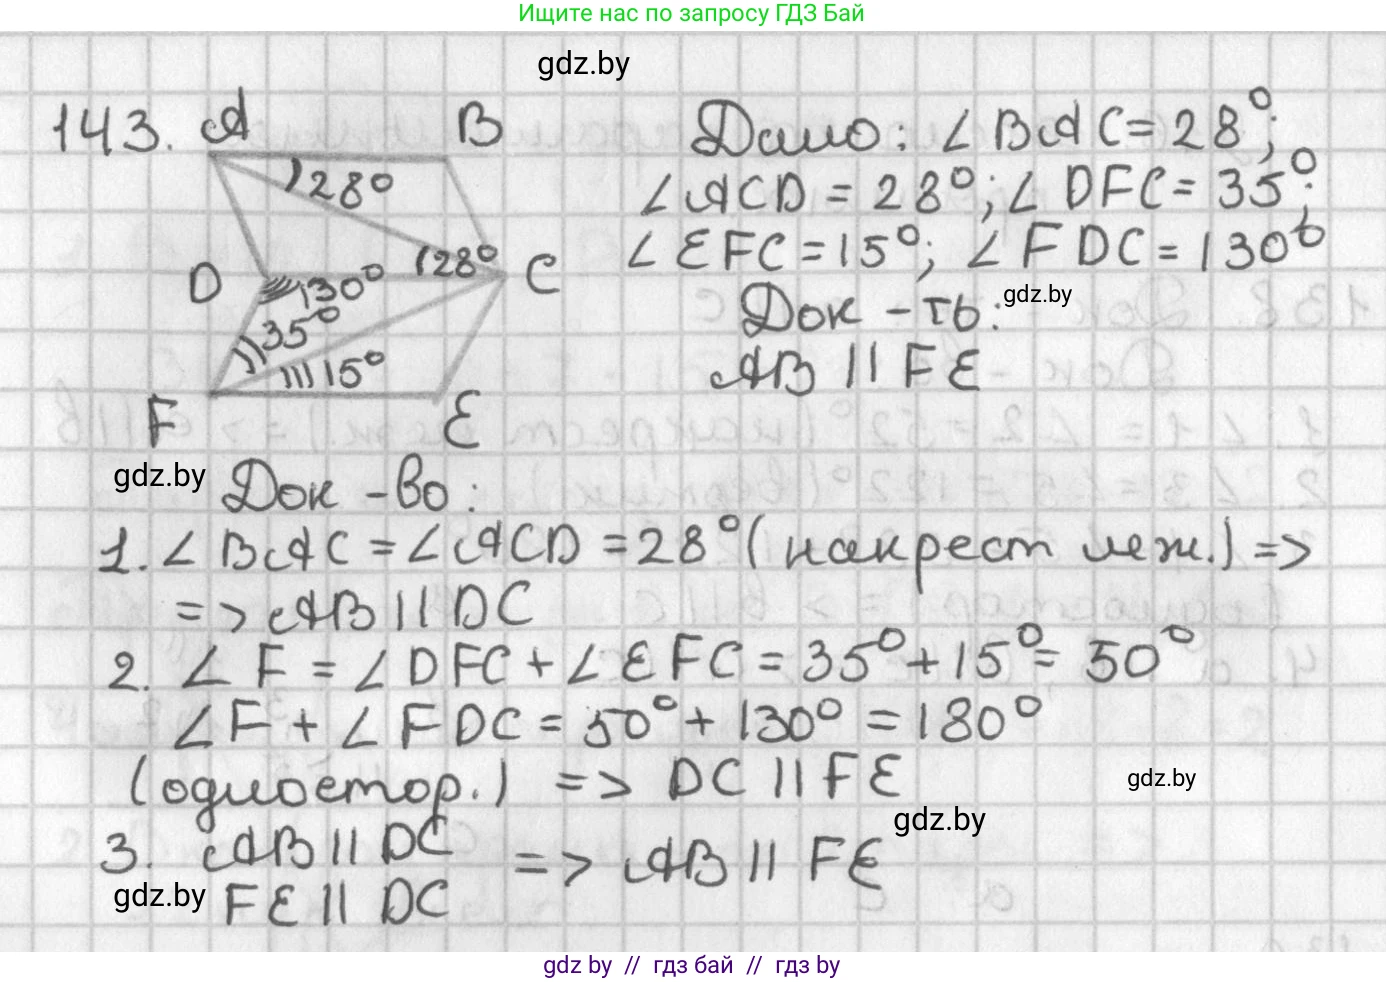 Ищите нас по запросу ГДЗ Бай
gdz.by
143. A B
28°
28° C
D 130°
35°
15°
F E
Дано: ∠BAC = 28°;
∠ACD = 28°; ∠DFC = 35°;
∠EFC = 15°; ∠FDC = 130°
Док-ть: gdz.by
AB || FE
gdz.by Док-во:
1. ∠BAC = ∠ACD = 28° (накрест леж.) =>
=> AB || DC
2. ∠F = ∠DFC + ∠EFC = 35° + 15° = 50°
∠F + ∠FDC = 50° + 130° = 180°
(одностор.) => DC || FE gdz.by
gdz.by
3. AB || DC => AB || FE
gdz.by FE || DC
gdz by // гдз бай // гдз by